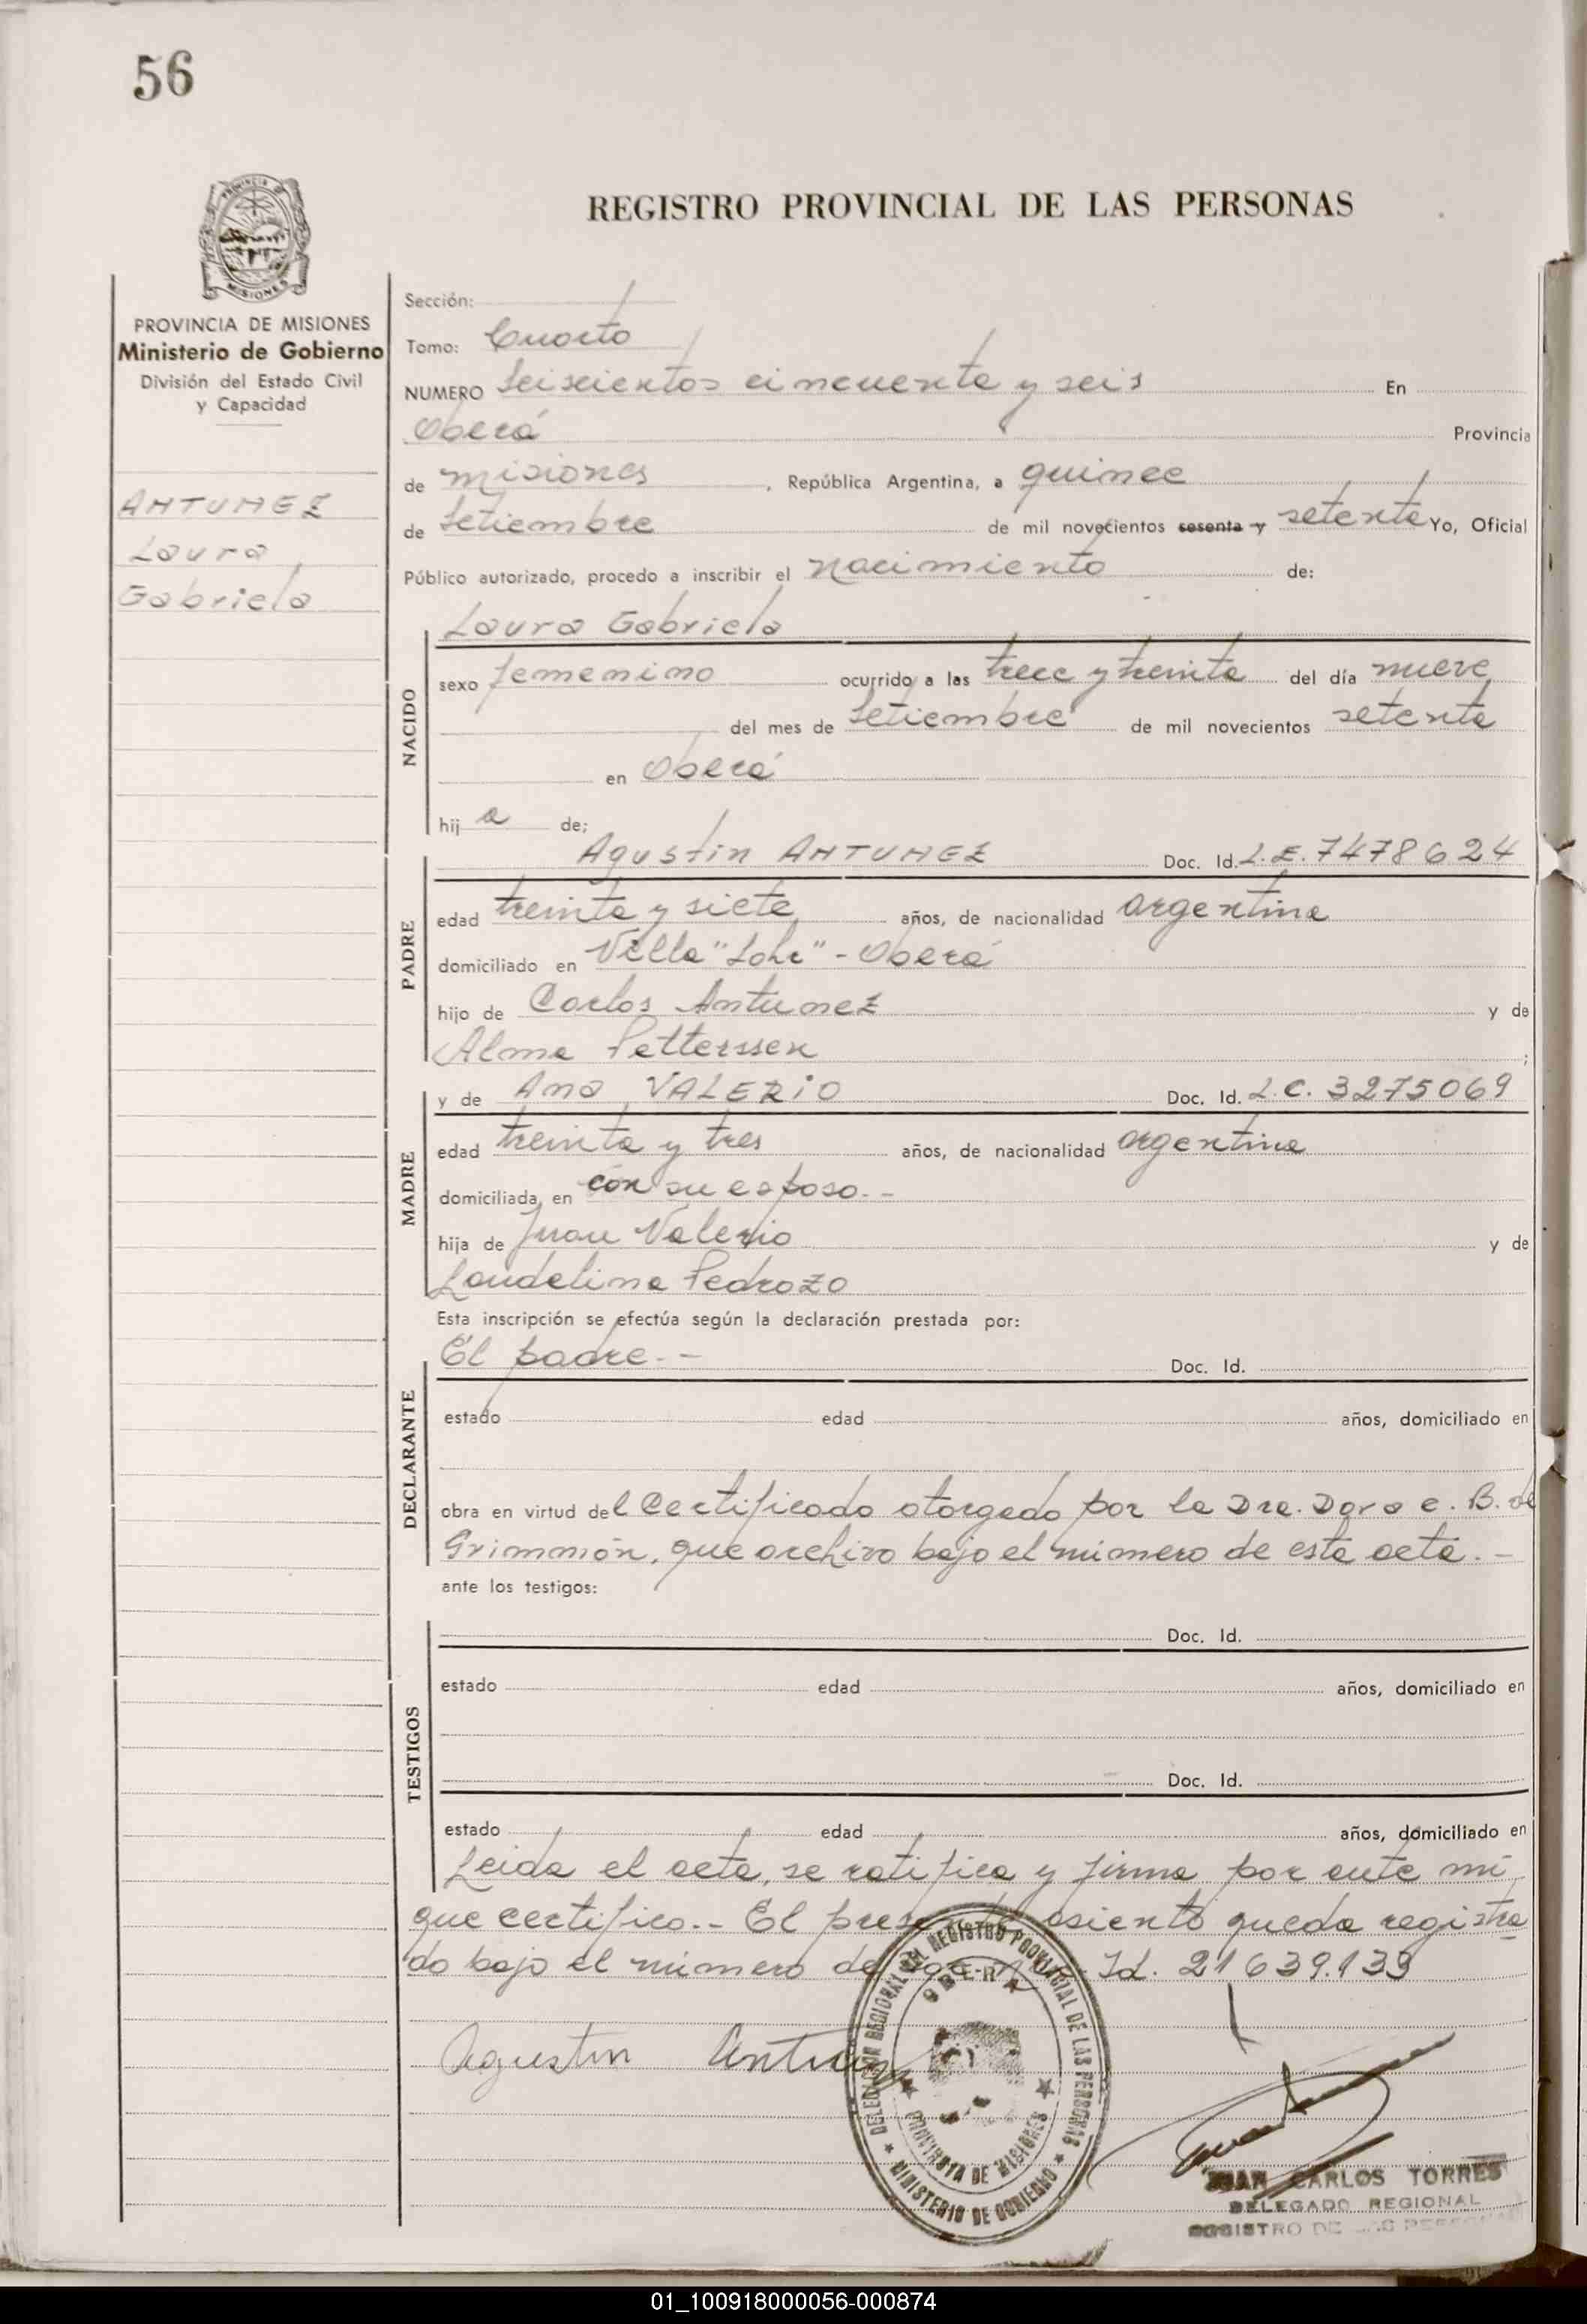 56
PROVINCIA DE
MISIONES
REGISTRO PROVINCIAL DE LAS PERSONAS
PROVINCIA DE MISIONES
Ministerio de Gobierno
División del Estado Civil
y Capacidad
ANTUNEZ
Laura
Gabriela
Sección:
Tomo: Cuarto
NUMERO Seiscientos cincuenta y seis En
Oberá Provincia
de misiones, República Argentina, a quince
de Setiembre de mil novecientos sesenta y setenta Yo, Oficial
Público autorizado, procedo a inscribir el nacimiento de:
Laura Gabriela
NACIDO
sexo femenino ocurrido a las trece y treinta del día nueve
del mes de Setiembre de mil novecientos setenta
en Oberá
hij a de:
Agustín ANTUNEZ Doc. Id. L.E. 7478624
PADRE
edad treinta y siete años, de nacionalidad argentina
domiciliado en Villa "Lohr" - Oberá
hijo de Carlos Antunez y de
Alma Petterssen ;
y de Ana VALERIO Doc. Id. L.C. 3275069
MADRE
edad treinta y tres años, de nacionalidad argentina
domiciliada en con su esposo.-
hija de Juan Valerio y de
Laudelina Pedrozo
Esta inscripción se efectúa según la declaración prestada por:
El padre.- Doc. Id.
DECLARANTE
estado edad años, domiciliado en
obra en virtud del Certificado otorgado por la Dra. Dora e. B. de
Grimmón, que archivo bajo el número de esta acta.-
ante los testigos:
Doc. Id.
TESTIGOS
estado edad años, domiciliado en
Doc. Id.
estado edad años, domiciliado en
Leida el acta, se ratifica y firma por ante mí
que certifico.- El presente asiento queda registra
do bajo el número de Id. 21639.139
Agustin Antunez
DELEGACION REGIONAL DEL REGISTRO PROVINCIAL DE LAS PERSONAS
OBERA
PROVINCIA DE MISIONES
MINISTERIO DE GOBIERNO
JUAN CARLOS TORRES
DELEGADO REGIONAL
REGISTRO DE LAS PERSONAS
01_100918000056-000874